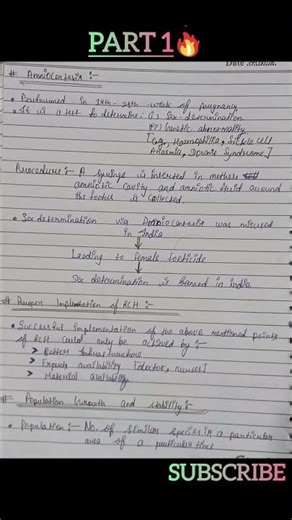 PART 1🔥
Date
# Amniocentesis :-
• Performed in 14th-24th week of pregnancy
• It is a test to determine: (i) Sex-determination
(ii) Genetic abnormality
[Eg., Haemophilia, Sickle cell
Anaemia, Down's Syndrome]
Procedure:- A syringe is inserted in mothers
amniotic cavity and amniotic fluid around
the foetus is collected.
• Sex determination via Amniocentesis was misused
in India
↓
Leading to Female foeticide
↓
Sex determination is banned in India
# Proper Implementation of RCH :-
• Successful implementation of the above mentioned points
of RCH could only be achieved by :-
> Better Infrastructure
> Experts availability [doctor, nurses]
> Material availability
# Population Growth and stability :-
• Population:- No. of similar species in a particular
area of a particular time
SUBSCRIBE